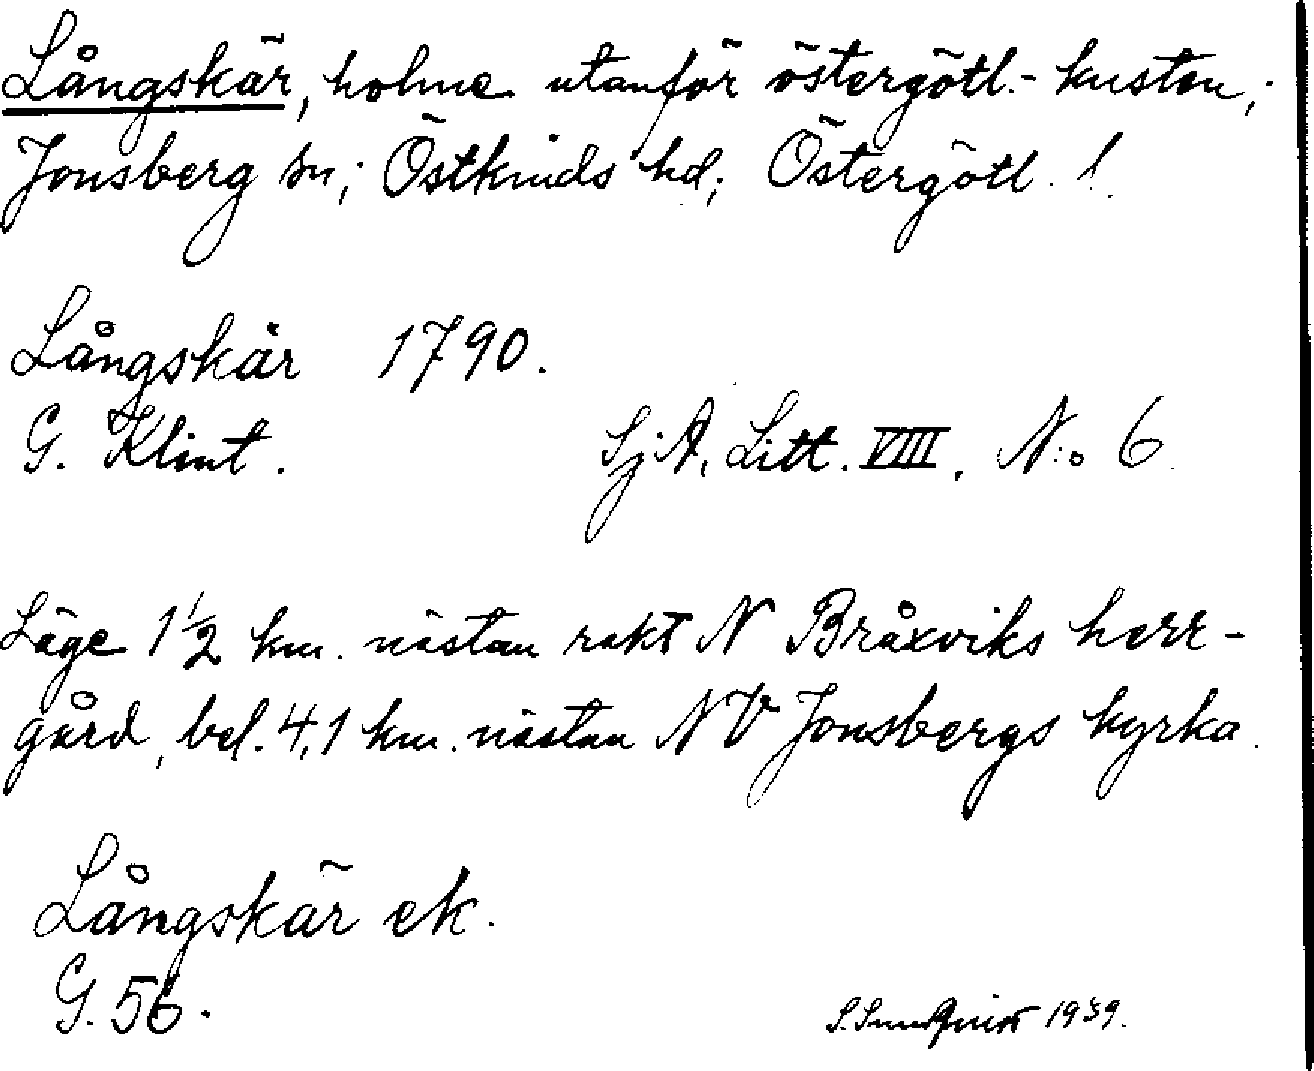 Långskär, holme utanför östergötl.-kusten,
Jonsberg sn; Östkinds hd; Östergötl. l.
Långskär 1790.
G. Klint. SjA, Litt. VIII, N:o 6
Läge 1 1/2 km. nästan rakt N Bråxviks herr-
gård, bel. 4,1 km. nästan NV Jonsbergs kyrka.
Långskär ek.
G. 56.
S. Sundquist 1939.